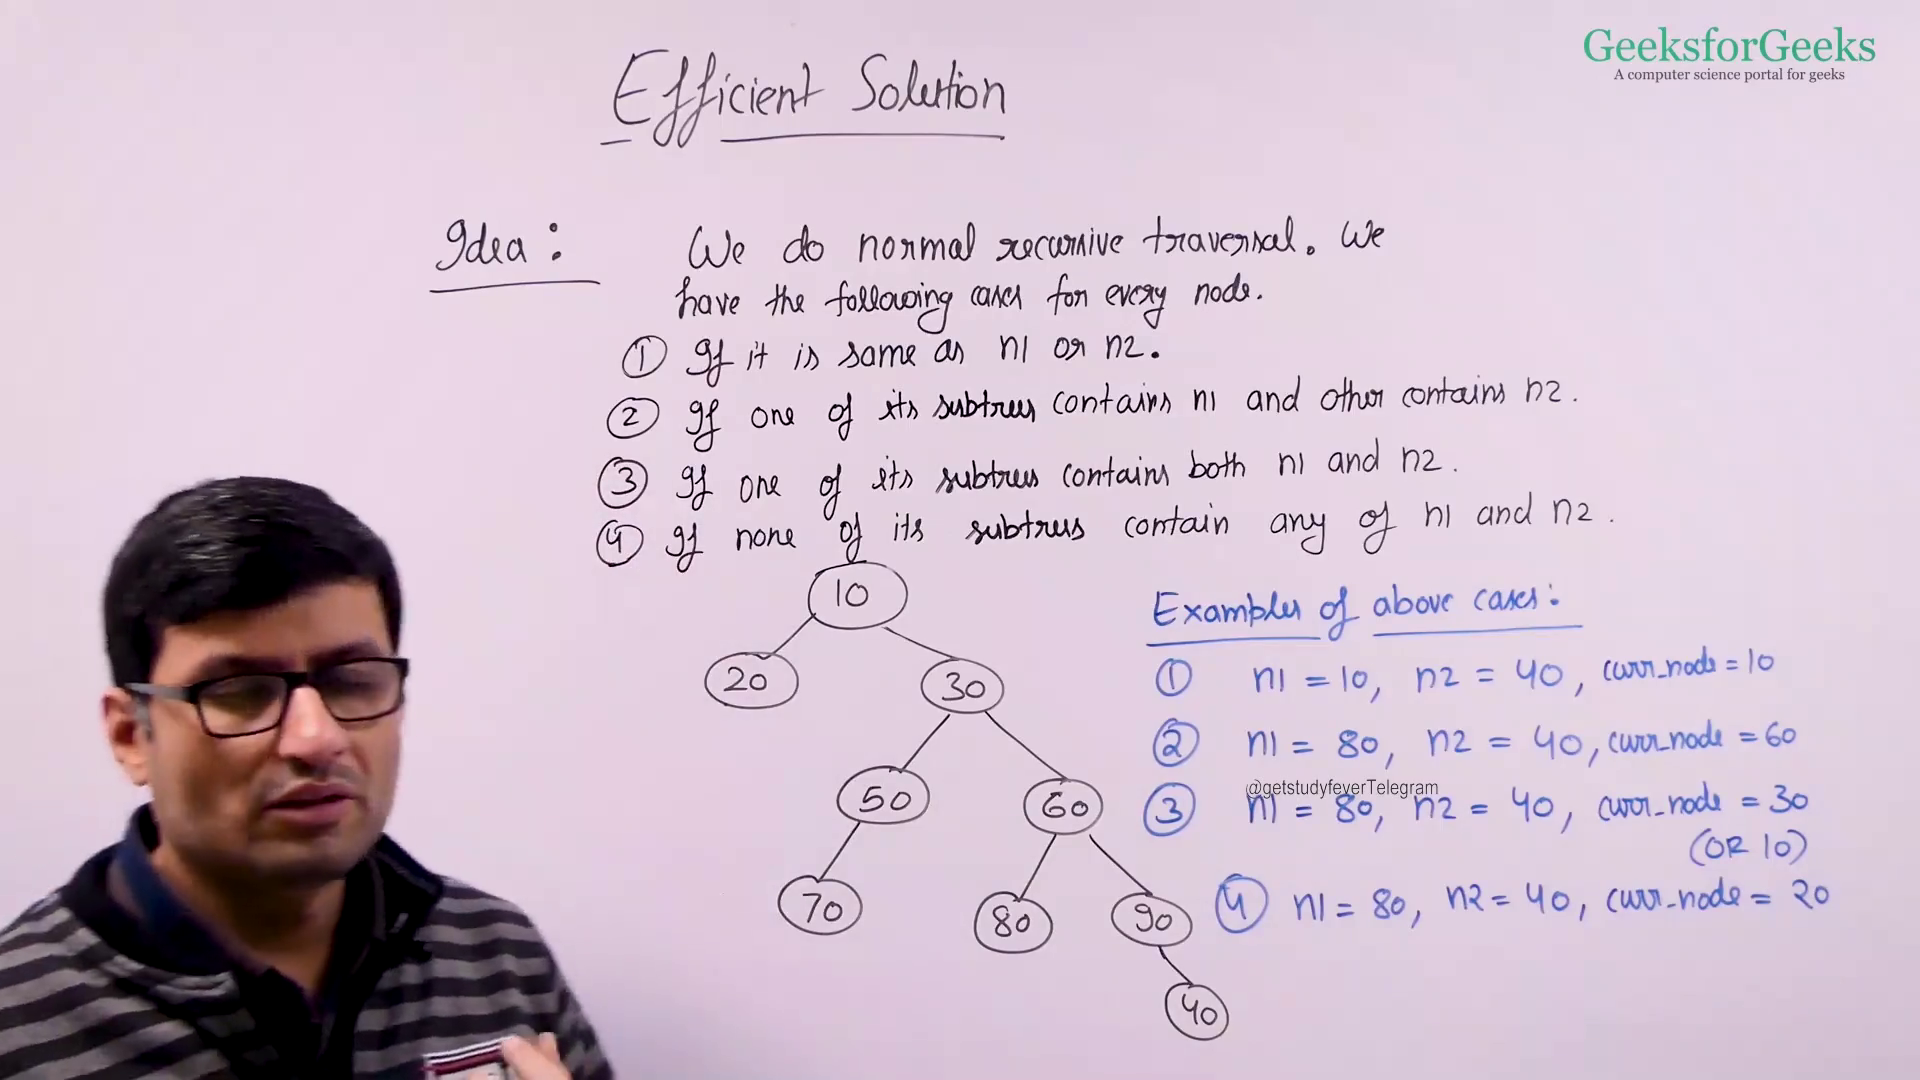 GeeksforGeeks
A computer science portal for geeks
Efficient Solution
Idea :
We do normal recursive traversal. We
have the following cases for every node.
① If it is same as n1 or n2.
② If one of its subtrees contains n1 and other contains n2.
③ If one of its subtrees contains both n1 and n2.
④ If none of its subtrees contain any of n1 and n2.
10
20
30
50
60
70
80
90
40
Examples of above cases:
① n1 = 10, n2 = 40, curr_node = 10
② n1 = 80, n2 = 40, curr_node = 60
@getstudyfeverTelegram
③ n1 = 80, n2 = 40, curr_node = 30
(OR 10)
④ n1 = 80, n2 = 40, curr_node = 20